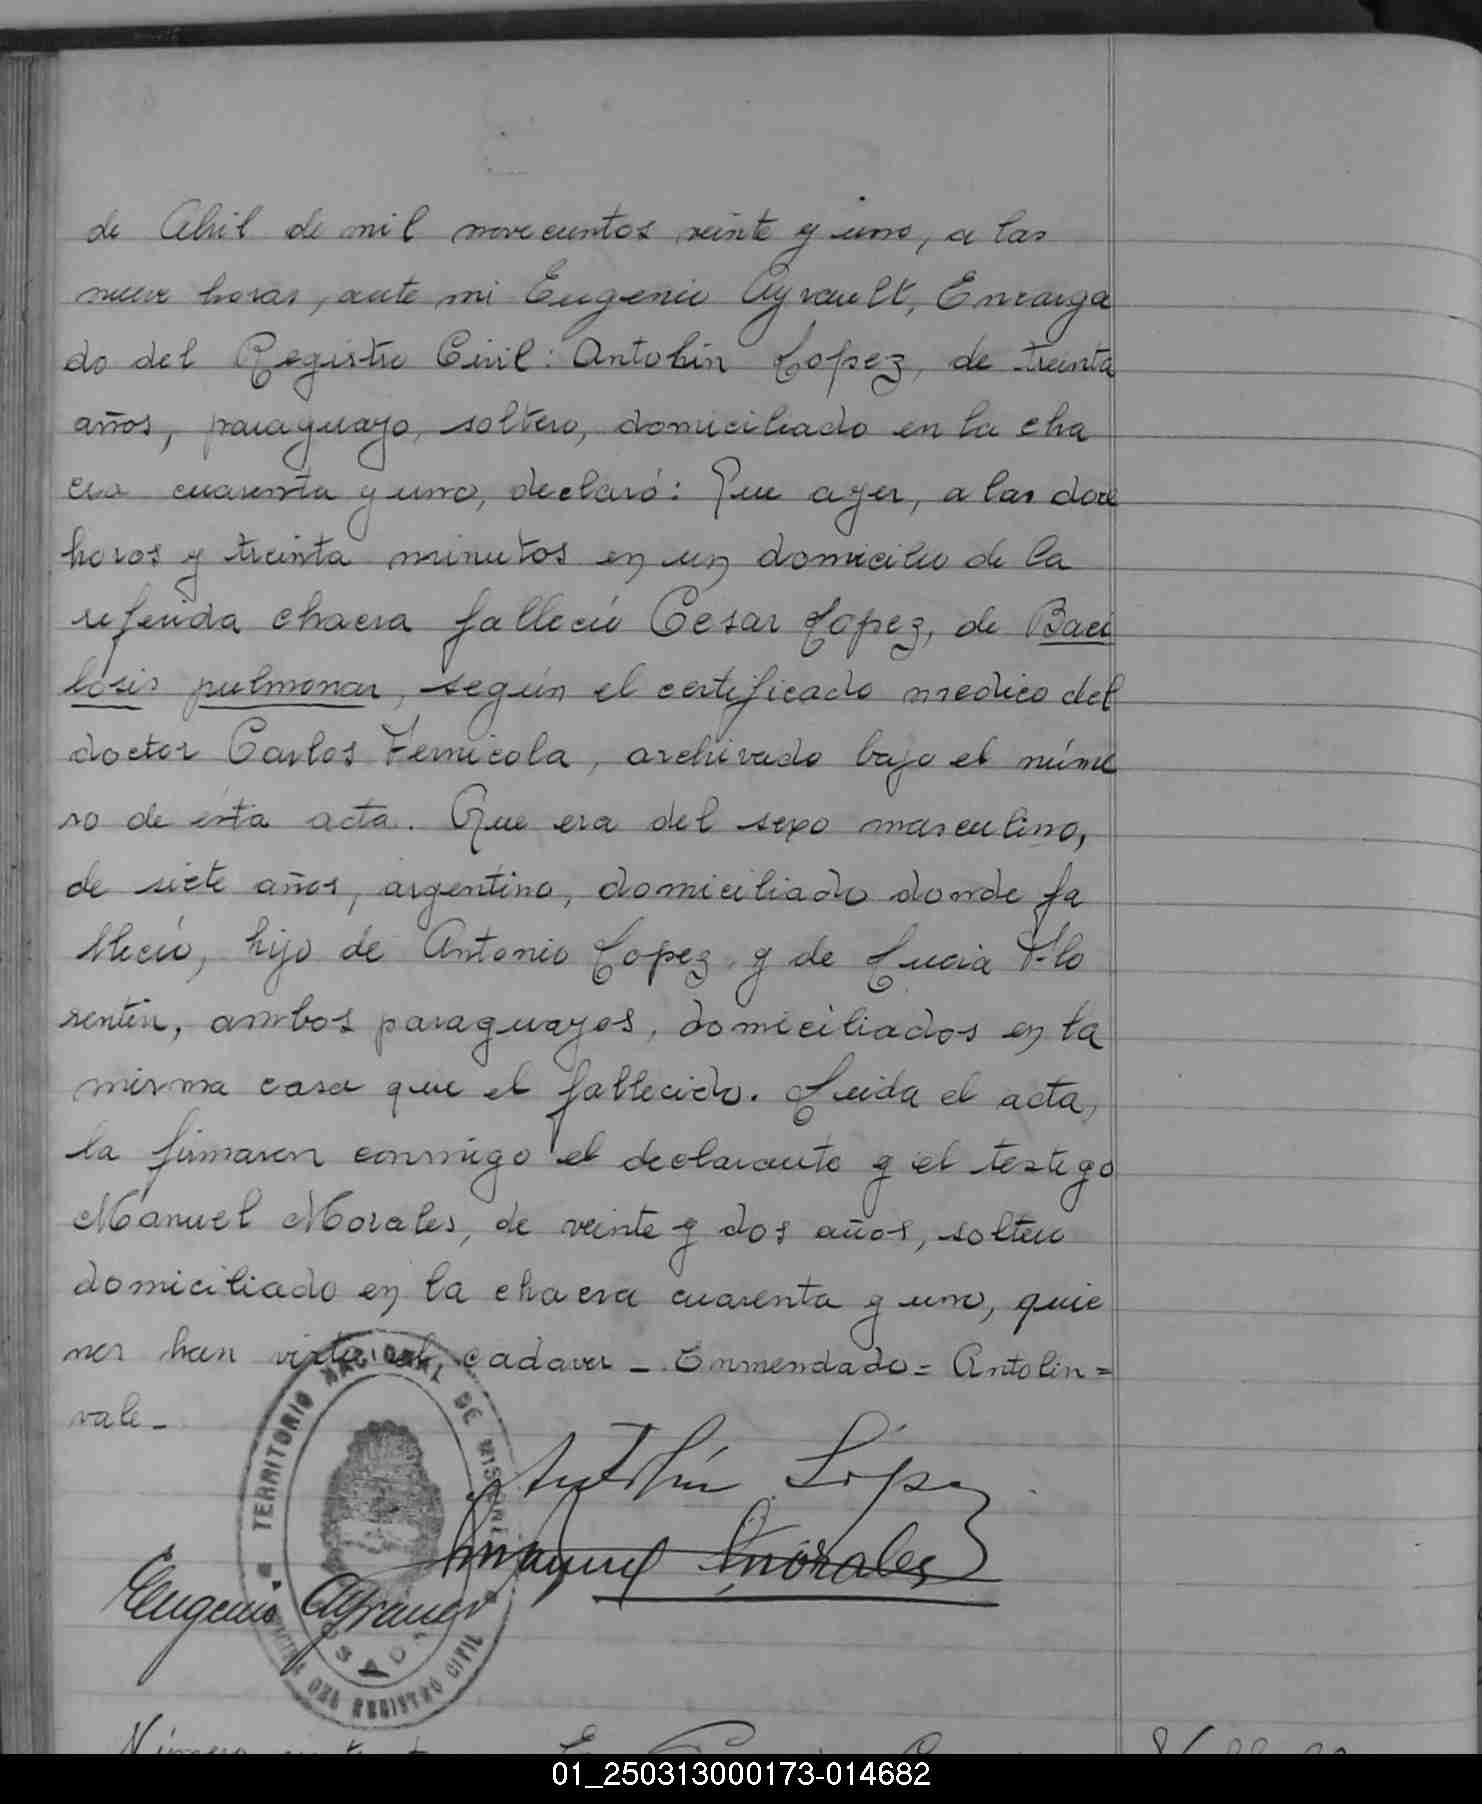 de Abril de mil novecientos veinte y uno, a las
nueve horas, ante mi Eugenio Ayrault, Encarga
do del Registro Civil: Antolin Lopez, de treinta
años, paraguayo, soltero, domiciliado en la cha
cra cuarenta y uno, declaró: Que ayer, a las doce
horas y treinta minutos en un domicilio de la
referida chacra falleció Cesar Lopez, de Baci
losis pulmonar, según el certificado medico del
doctor Carlos Fernicola, archivado bajo el núme
ro de esta acta. Que era del sexo masculino,
de siete años, argentino, domiciliado donde fa
lleció, hijo de Antonio Lopez y de Lucia Flo
rentin, ambos paraguayos, domiciliados en la
misma casa que el fallecido. Leida el acta,
la firmaron conmigo el declarante y el testigo
Manuel Morales, de veinte y dos años, soltero
domiciliado en la chacra cuarenta y uno, quie
nes han visto el cadaver - Enmendado = Antolin =
vale -
Antolín López
Manuel Morales
Eugenio Ayrault
TERRITORIO NACIONAL DE MISIONES
OFICINA DEL REGISTRO CIVIL
POSADAS
Número
01_250313000173-014682